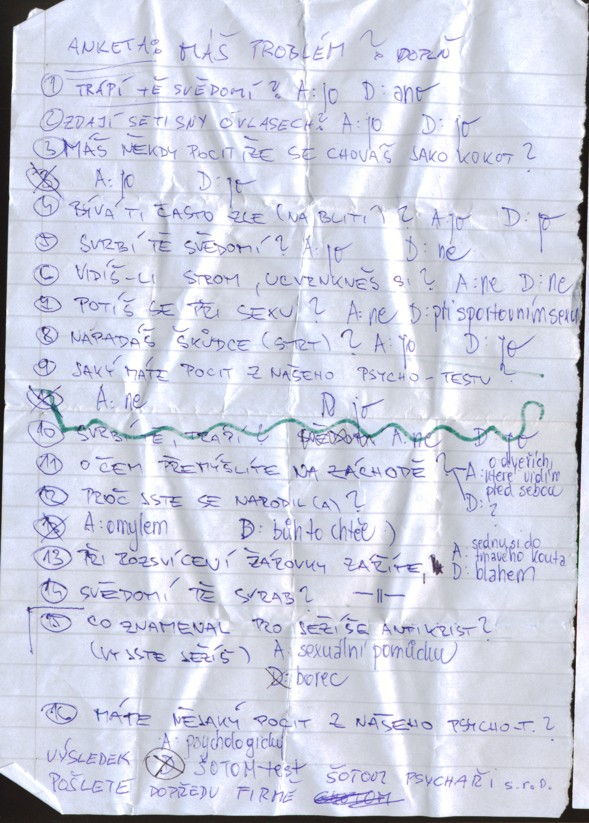 ANKETA: MÁŠ PROBLÉM? DOPLŇ
① TRÁPÍ TĚ SVĚDOMÍ? A: jo D: ano
② ZDAJÍ SE TI SNY O VLASECH? A: jo D: jo
③ MÁŠ NĚKDY POCIT ŽE SE CHOVÁŠ JAKO KOKOT?
A: jo D: jo
④ BÝVÁ TI ČASTO ZLE (NA BLITÍ)? A: jo D: jo
⑤ SVRBÍ TĚ SVĚDOMÍ? A: jo D: ne
⑥ VIDÍŠ-LI STROM, UCVRNKNEŠ SI? A: ne D: ne
⑦ POTÍŠ SE PŘI SEXU? A: ne D: při sportovním sexu
⑧ NAPADÁŠ ŠKŮDCE (STRT)? A: jo D: jo
⑨ JAKÝ MÁTE POCIT Z NAŠEHO PSYCHO-TESTU?
A: ne D: jo
⑩ SVRBÍ TĚ, TRÁPÍ SVĚDOMÍ A: ne D:
⑪ O ČEM PŘEMÝŠLÍTE NA ZÁCHODĚ? A: o dveřích,
které vidím
před sebou
D: ?
⑫ PROČ JSTE SE NARODIL(A)?
A: omylem D: bůh to chtěl )
⑬ PŘI ROZSVÍCENÍ ŽÁROVKY ZÁŘÍTE, A: sednu si do
tmavého kouta
D: blahem
⑭ SVĚDOMÍ TĚ SVRAB? —||—
⑮ CO ZNAMENAL PRO JEŽÍŠE ANTIKRIST?
(VY JSTE JEŽÍŠ) A: sexuální pomůcku
D: borec
⑯ MÁTE NĚJAKÝ POCIT Z NAŠEHO PSYCHO-T.?
A: psychologický
D: ŠOTOM-test
VÝSLEDEK POŠLETE DOPŘEDU FIRMĚ ŠOTOM PSYCHAŘI s.r.o.